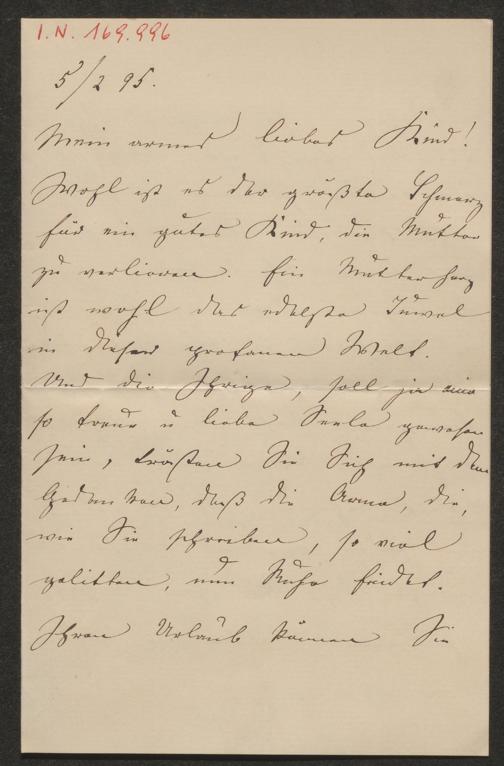 I.N. 169.996
5/2 95.
Mein armes, liebes Kind!
Wohl ist es der größte Schmerz
für ein gutes Kind, die Mutter
zu verlieren. Ein Mutterherz
ist wohl das edelste Juwel
in dieser profanen Welt.
Und die Ihrige, soll ja eine
so treue u liebe Seele gewesen
sein, trösten Sie Sich mit dem
Gedanken, daß die Arme, die,
wie Sie schreiben, so viel
gelitten, nun Ruhe findet.
Ihren Urlaub können Sie